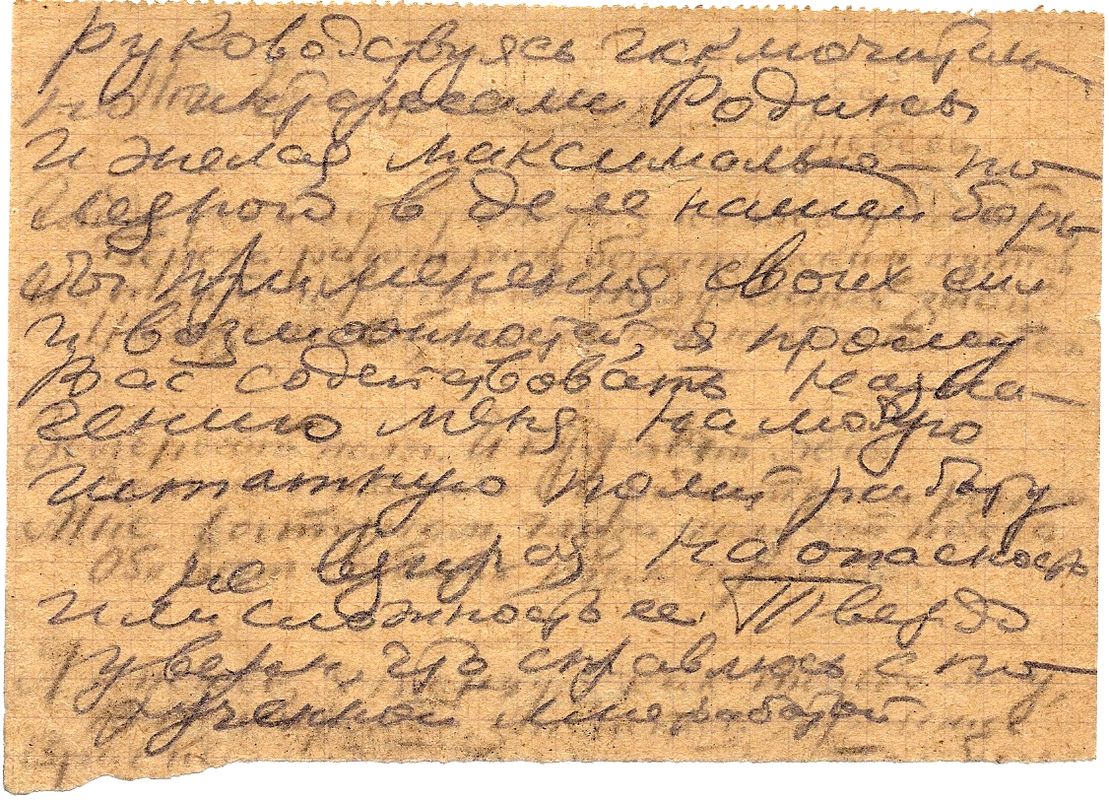 руководствуясь исключитель-
но интересами Родины
и желая максимально по-
лезного в деле нашей борь-
бы применения своих сил
и возможностей, я прошу
Вас содействовать назна-
чению меня на любую
штатную полит работу
не взирая на опасность
или сложность ее. Твердо
уверен, что справлюсь с по-
рученной мне работой